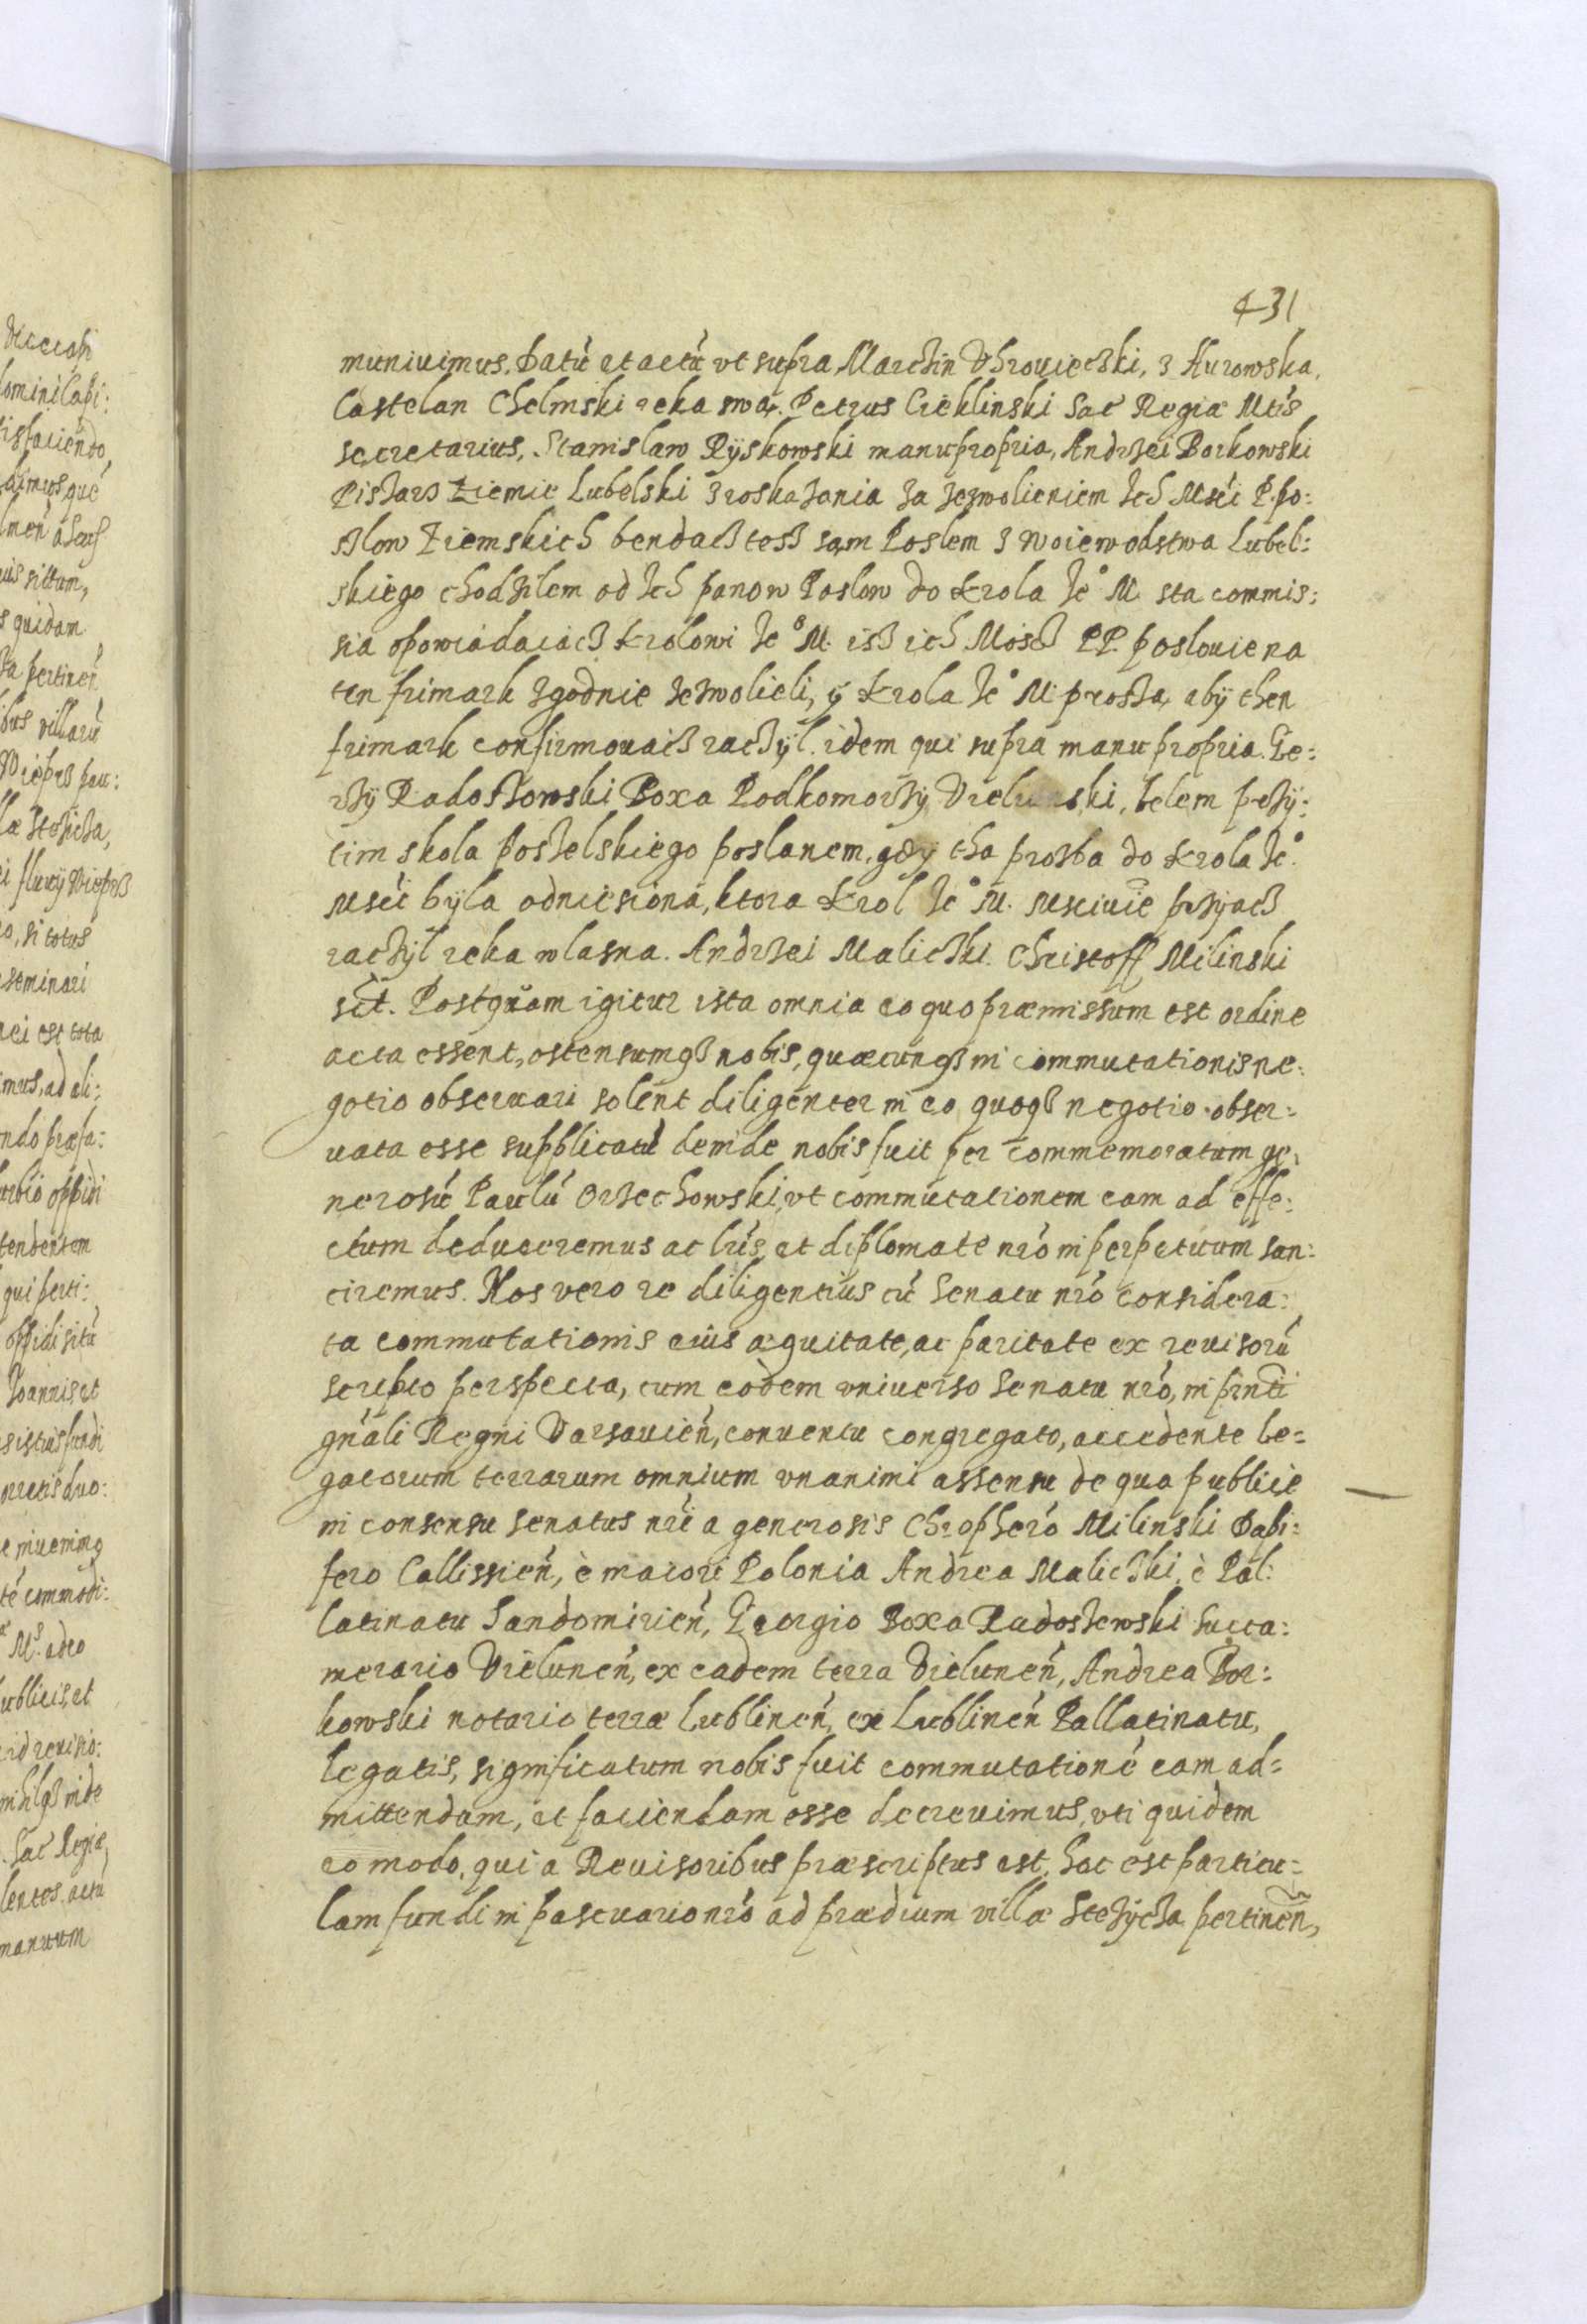 431
muniuimus. Datũ et actũ vt supra, Marczin Vhrouieczki, z Hurowska,
Castelan Chelmski reka swą. Petrus Cieklinski Sac Regiæ Mtis
secretarius, Stanislaw Rÿskowski manu propria, Andrzei Borkowski
Piszarz Ziemie Lubelski z roskazania za zezwolieniem Ich Msci P. po:
szlow Ziemskich bendacz tesz sąm Poslem z woiewodstwa Lubel:
skiego chodzilem od Ich panow Poslow do Krola Ie° M. sta commis:
sia opowiadaiacz Krolowi Ie° M. isz ich Moscz PP. poslouie na
ten frimark zgodnie zezwolieli, ÿ Krola Ie° M. proszą, abÿ then
frimark confirmouacz raczÿl. idem qui supra manu propria. Ge:
rzÿ Radoszowski Boxa Podkomorzÿ Vielunski, belem przÿ:
tim skola poszelskiego poslanem, gdÿ tha prozba do Krola Ie°
Msci bÿla odniesiona, ktora Krol Ie° M. Msciuie przÿacz
raczÿl reka wlasna. Andrzei Maliczki. Christoff Milinski
sst. Postquam igitur ista omnia eo quo præmissum est ordine
acta essent, ostensumqz nobis, quæcunqz in commutationis ne:
gotio obseruari solent diligenter in eo quoqz negotio obser:
uata esse supplicatũ deinde nobis fuit per commemoratum ge:
nerosũ Paulũ Orzechowski, vt commutationem eam ad effe:
ctum deduceremus ac lris, et diplomate nro in perpetuum san:
ciremus. Nos vero re diligentius cũ Senatu nro considera:
ta commutationis eius æquitate, ac paritate ex reuisorũ
scripto perspecta, cum eodem vniuerso Senatu nro, in pinti
gnali Regni Varsauien, conuentu congregato, accedente le:
gatorum terrarum omnium vnanimi assensu de qua publice
in consensu Senatus nri a generosis Chrophero Milinski Dapi:
fero Callissien, è maiori Polonia Andrea Maliczki, è Pal:
latinatu Sandomirien, Georgio Boxa Radoszewski Succa:
merario Vielunen, ex eadem terra Vielunen, Andrea Bor:
kowski notario terræ Lublinen, ex Lublinen Pallatinatu,
legatis, significatum nobis fuit commutationẽ eam ad:
mittendam, et faciendam esse decreuimus, vti quidem
eo modo, qui a Reuisoribus præscriptus est, hoc est particu:
lam fundi in pascuario nro ad prædium villæ Stezÿcza pertinen,